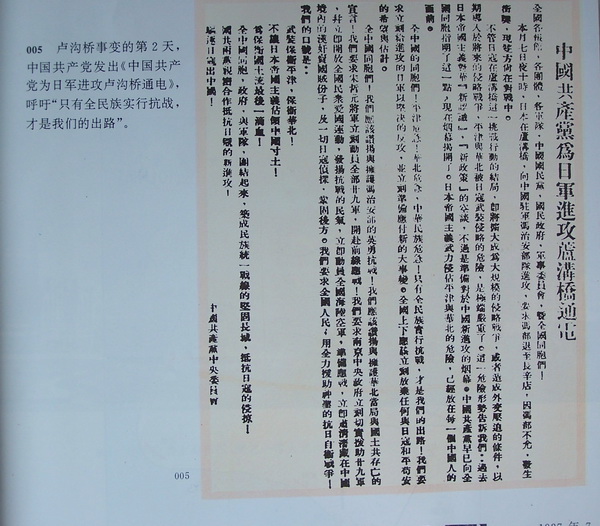 005 卢沟桥事变的第2天，
中国共产党发出《中国共产
党为日军进攻卢沟桥通电》，
呼吁“只有全民族实行抗战，
才是我们的出路”。
中國共產黨為日軍進攻蘆溝橋通電
全國各報館，各團體，各軍隊，中國國民黨，國民政府，軍事委員會，暨全國同胞們！
本月七日夜十時，日本在蘆溝橋，向中國駐軍馮治安部隊進攻，要求馮部退至長辛店，因馮部不允，發生
衝突，現雙方尚在對戰中。
不管日寇在蘆溝橋這一挑戰行動的結局，即將擴大成為大規模的侵略戰爭，或者造成外交壓迫的條件，以
期導入於將來的侵略戰爭，平津與華北被日寇武裝侵略的危險，是極端嚴重了。這一危險形勢告訴我們：過去
日本帝國主義對華「新認識」，「新政策」的空談，不過是準備對於中國新進攻的烟幕。中國共產黨早已向全
國同胞指明了這一點，現在烟幕揭開了。日本帝國主義武力侵佔平津與華北的危險，已經放在每一個中國人的
面前。
全中國的同胞們！平津危急！華北危急！中華民族危急！只有全民族實行抗戰，才是我們的出路！我們要
求立刻給進攻的日軍以堅決的反攻，並立刻準備應付新的大事變。全國上下應該立刻放棄任何與日寇和平苟安
的希望與估計。
全中國同胞們！我們應該讚揚與擁護馮治安部的英勇抗戰！我們應該讚揚與擁護華北當局與國土共存亡的
宣言！我們要求宋哲元將軍立刻動員全部廿九軍，開赴前線應戰！我們要求南京中央政府立刻切實援助廿九軍
，並立即開放全國民眾愛國運動，發揚抗戰的民氣，立即動員全國海陸空軍，準備應戰，立即肅清潛藏在中國
境內的漢奸賣國賊份子，及一切日寇偵探，鞏固後方。我們要求全國人民，用全力援助神聖的抗日自衛戰爭！
我們的口號是：
武裝保衛平津，保衛華北！
不讓日本帝國主義佔領中國寸土！
為保衛國土流最後一滴血！
全中國同胞，政府，與軍隊，團結起來，築成民族統一戰線的堅固長城，抵抗日寇的侵掠！
國共兩黨親密合作抵抗日寇的新進攻！
驅逐日寇出中國！
中國共產黨中央委員會
005